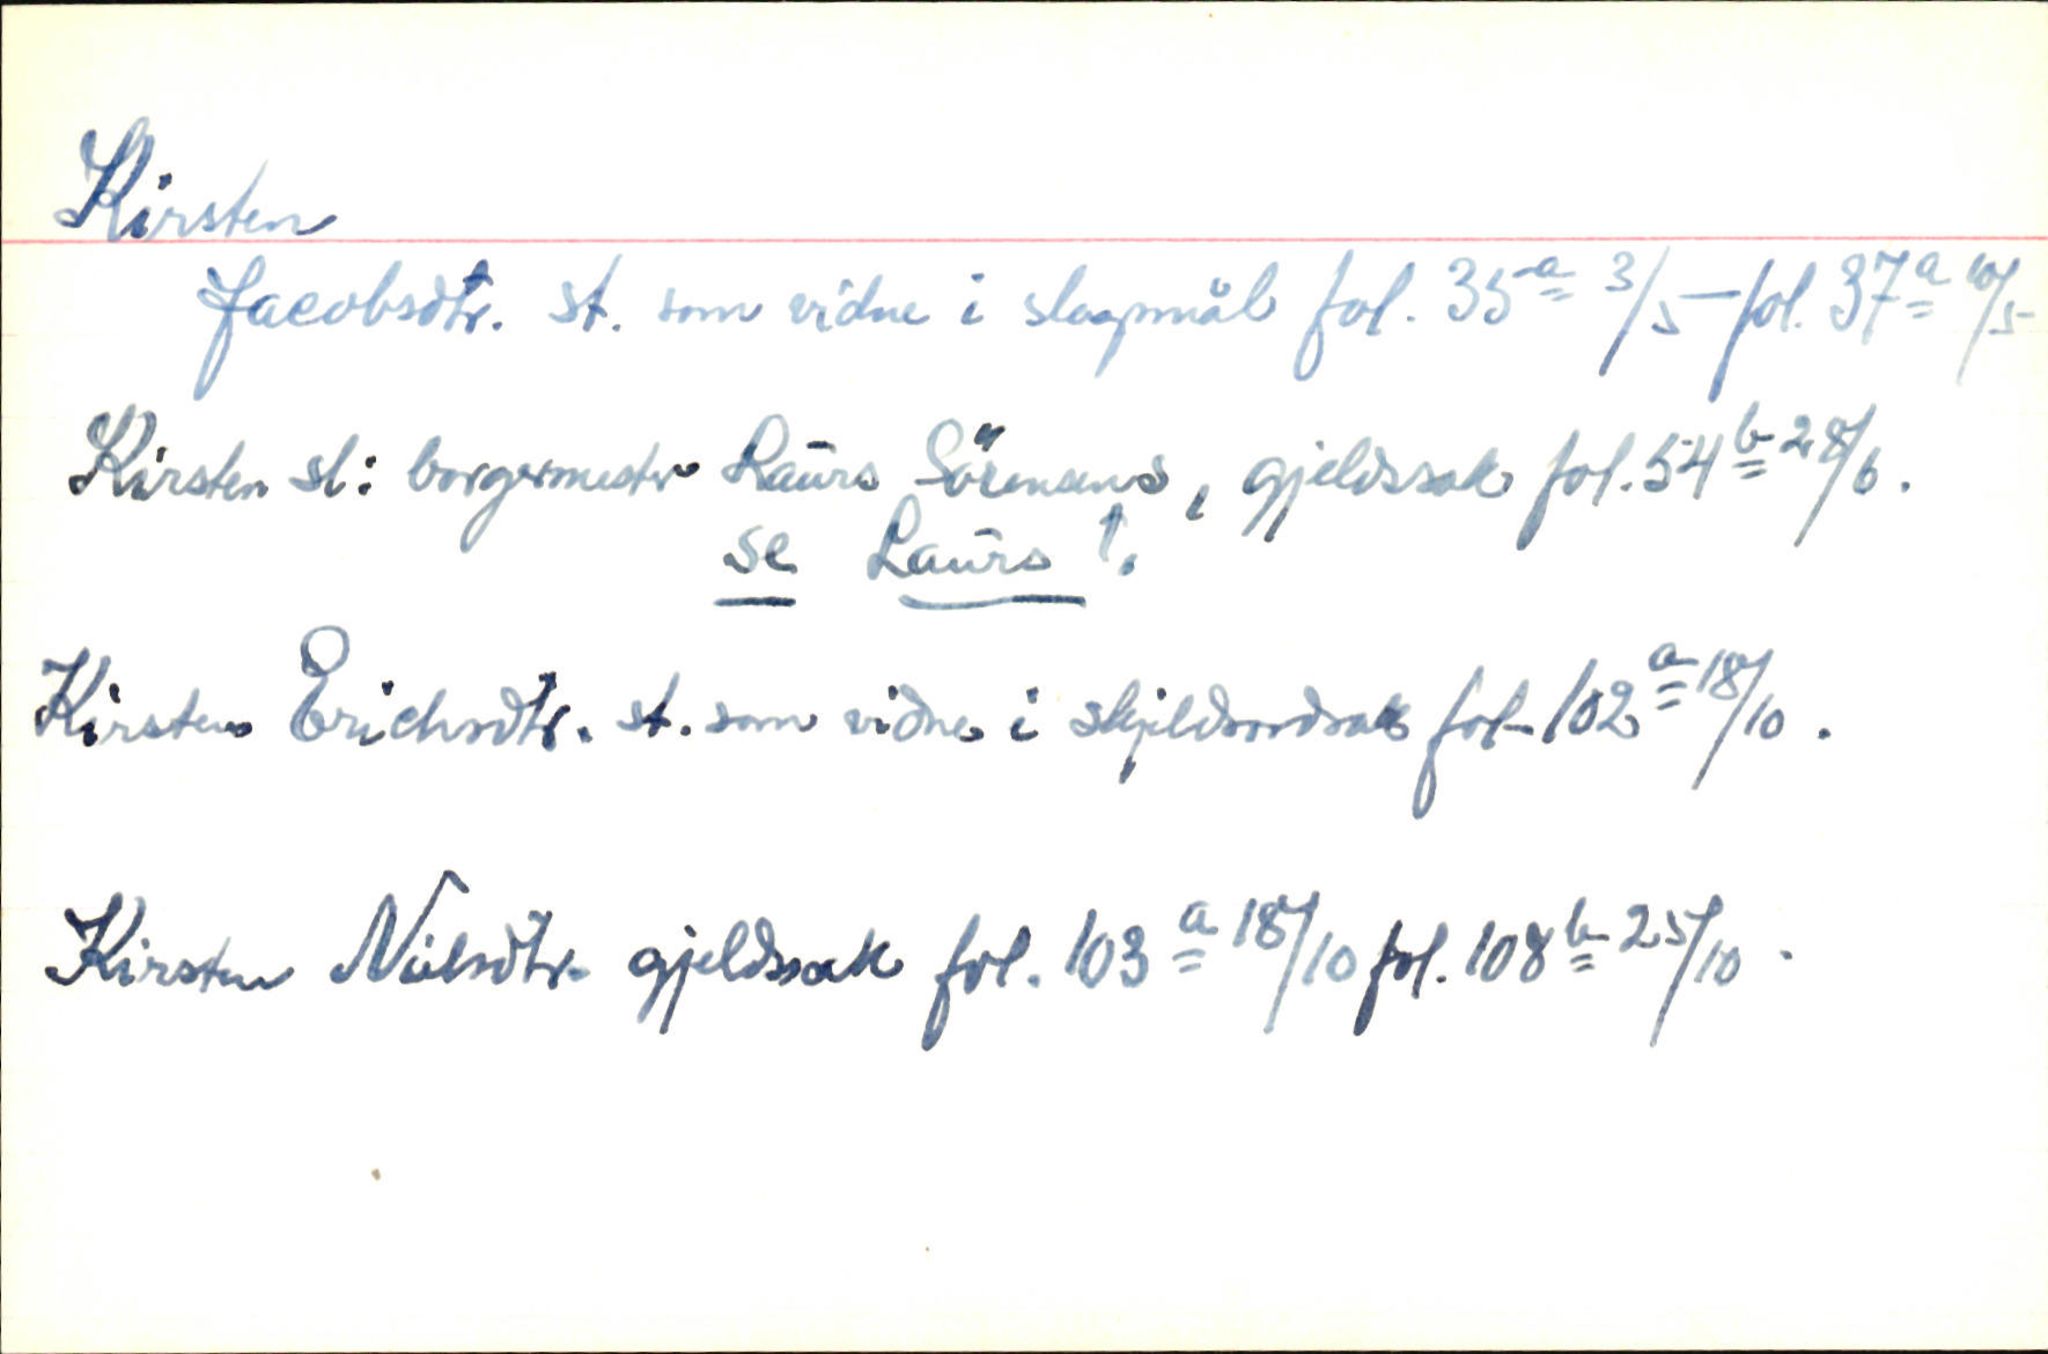 Kirsten
Jacobsdtr. st. som vidne i slagsmål fol. 35 a 3/5 - fol. 37 a 10/5
Kirsten sl: borgermester Laurs Sörensens, gjeldssak fol. 54 b 28/6.
se Laurs ↑.
Kirsten Erichsdtr. st. som vidne i skjeldsordsak fol. 102 a 18/10.
Kirsten Nielsdtr. gjeldssak fol. 103 a 18/10 fol. 108 b 25/10.